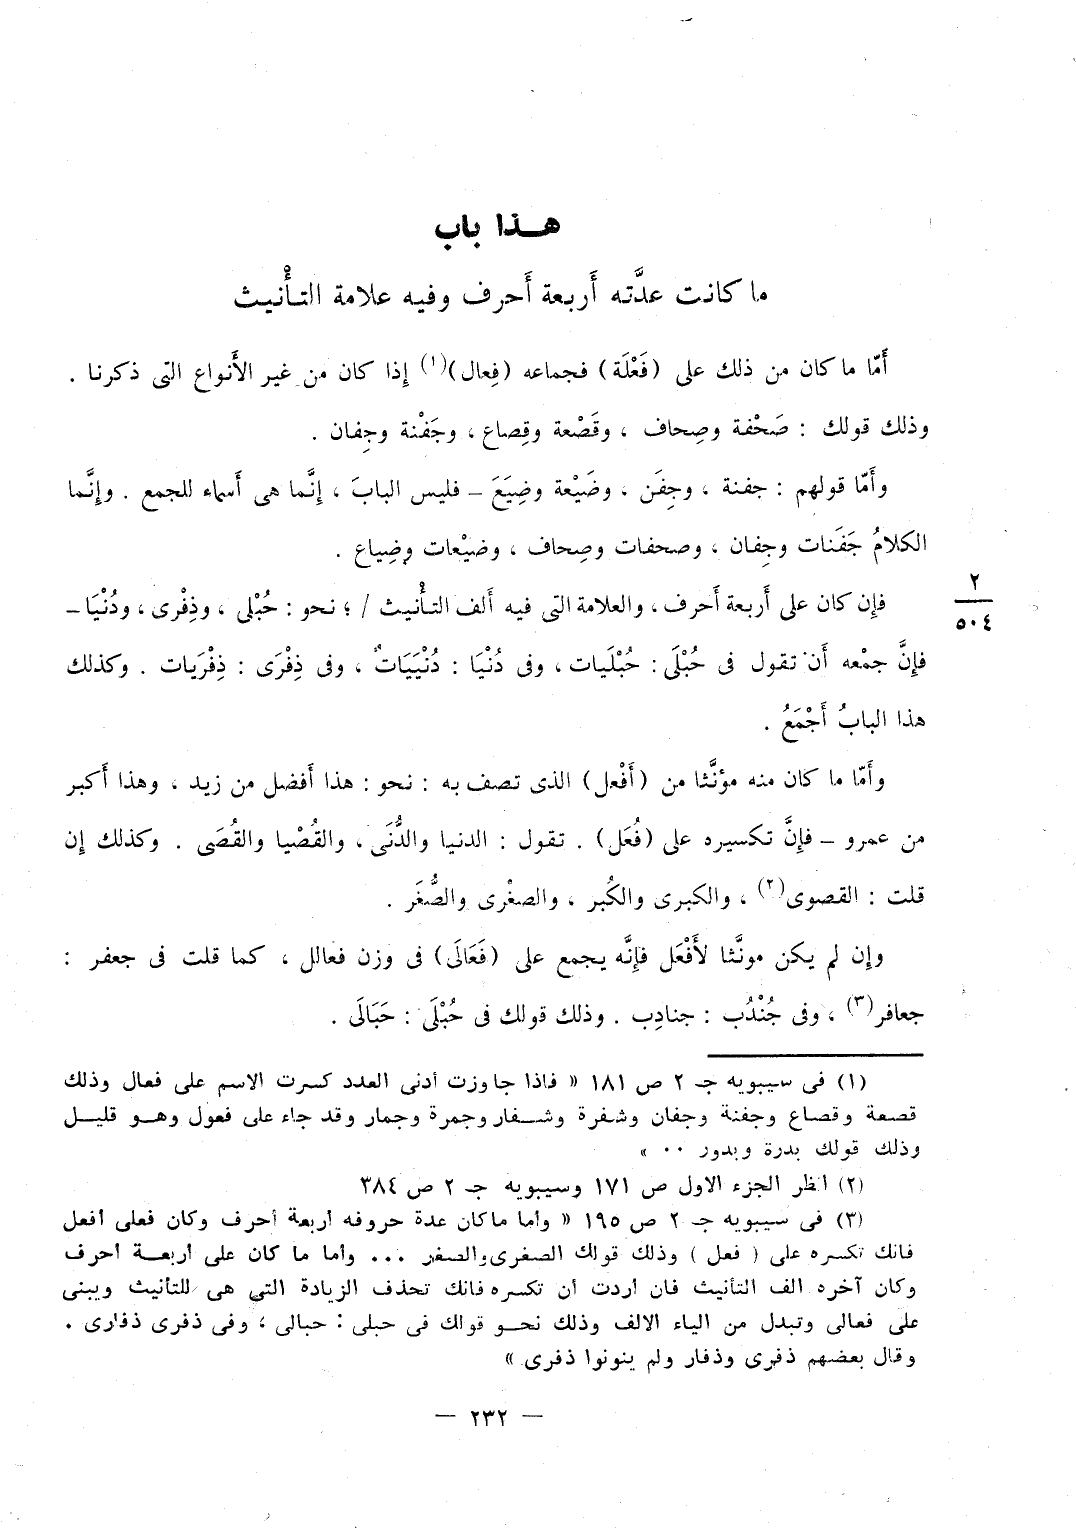 هـذا باب
ما كانت عدَّته أَربعة أَحرف وفيه علامة التـأْنيث
أَمّا ما كان من ذلك على (فَعْلَة) فجماعه (فِعال)(١) إذا كان من غير الأَنواع التى ذكرنا .
وذلك قولك : صَحْفة وصِحاف ، وقَصْعة وقِصاع ، وجَفْنة وجِفان .
وأَمّا قولهم : جفنة ، وجِفَن ، وضَيْعة وضِيَعَ – فليس البابَ ، إنَّما هى أَسماء للجمع . وإنَّما
الكلامُ جَفَنات وجِفان ، وصحفات وصِحاف ، وضيْعات وضِياع .
فإن كان على أَربعة أَحرف ، والعلامة التى فيه أَلف التأْنيث / ؛ نحو : حُبْلى ، وذِفْرى ، ودُنْيَا –
٢
٥٠٤
فإنَّ جمْعه أَن تقول فى حُبْلَى : حُبْلَيات ، وفى دُنْيَا : دُنْيَيَاتٌ ، وفى ذِفْرَى : ذِفْرَيات . وكذلك
هذا البابُ أَجْمَعُ .
وأَمّا ما كان منه مؤنَّثا من (أَفْعل) الذى تصف به : نحو : هذا أَفضل من زيد ، وهذا أَكبر
من عمرو – فإنَّ تكسيره على (فُعَل) . تقول : الدنيا والدُّنَى ، والقُصْيا والقُصَى . وكذلك إن
قلت : القصوى(٢) ، والكبرى والكُبر ، والصغْرى والصُّغَر .
وإن لم يكن مونَّثا لأَفْعَل فإنَّه يجمع على (فَعَالَى) فى وزن فعالل ، كما قلت فى جعفر :
جعافر(٣) ، وفى جُنْدُب : جنادِب . وذلك قولك فى حُبْلَى : حَبَالَى .
(١) فى سيبويه جـ ٢ ص ١٨١ « فاذا جاوزت أدنى العدد كسرت الاسم على فعال وذلك
قصعة وقصاع وجفنة وجفان وشفرة وشـفار وجمرة وجمار وقد جاء على فعول وهـو قليـل
وذلك قولك بدرة وبدور ٠٠ »
(٢) انظر الجزء الاول ص ١٧١ وسيبويه جـ ٢ ص ٣٨٤
(٣) فى سيبويه جـ ٢ ص ١٩٥ « وأما ماكان عدة حروفه أربعة أحرف وكان فعلى أفعل
فانك تكسره على ( فعل ) وذلك قولك الصغرى والصغر ... وأما ما كان على أربعـة أحرف
وكان آخره الف التأنيث فان أردت أن تكسره فانك تحذف الزيادة التى هى للتأنيث ويبنى
على فعالى وتبدل من الياء الالف وذلك نحـو قولك فى حبلى : حبالى ، وفى ذفرى ذفارى .
وقال بعضهم ذفرى وذفار ولم ينونوا ذفرى »
— ٢٣٢ —